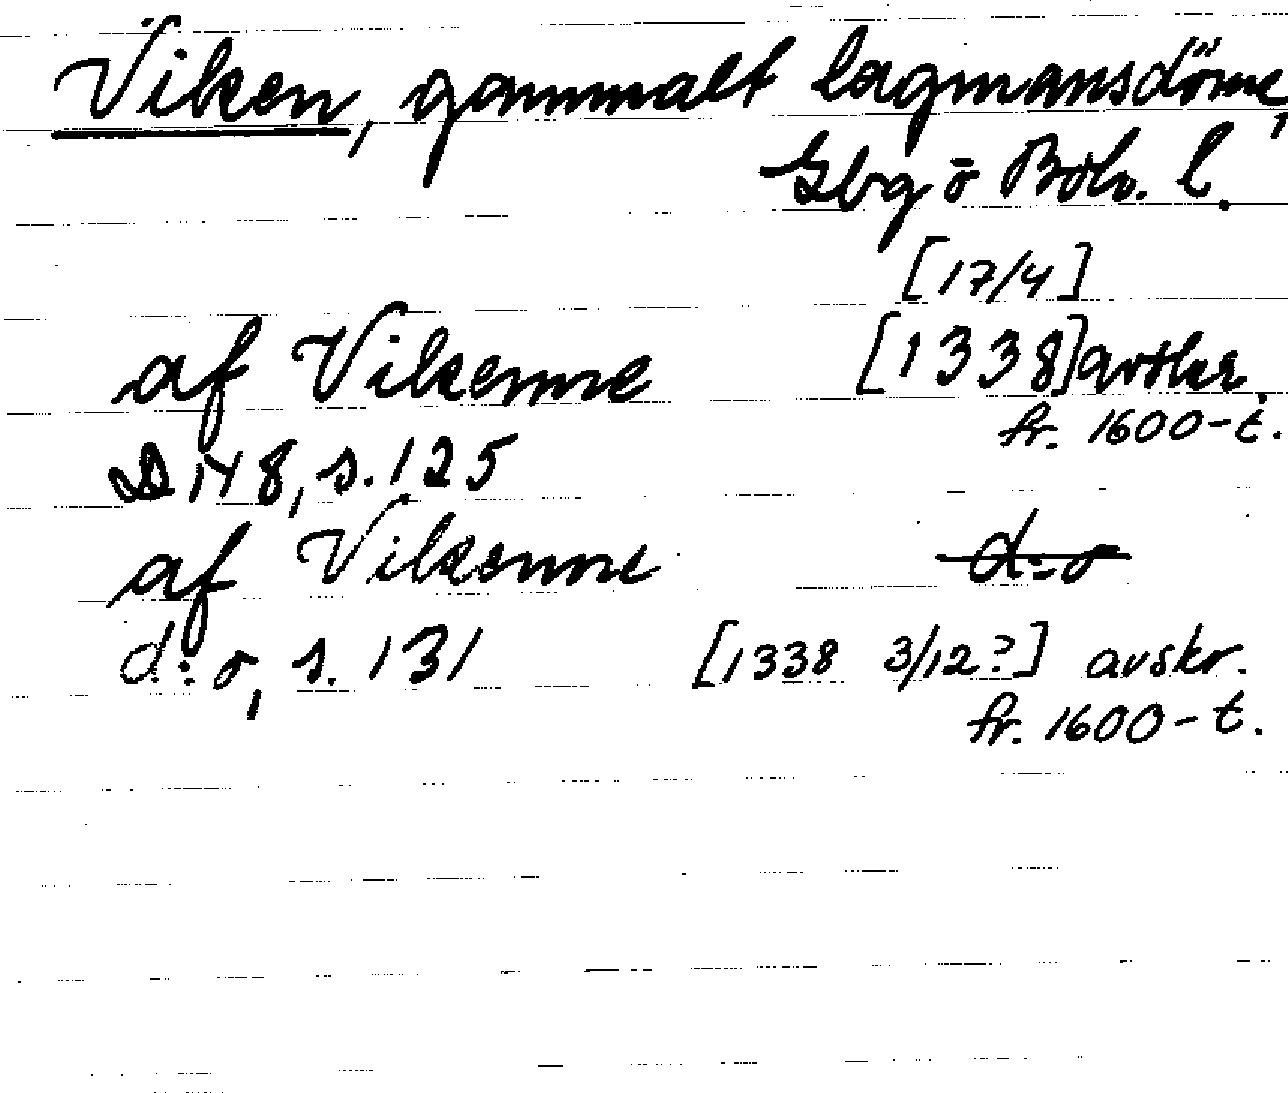 Viken, gammalt lagmansdöme,
Gbg o Boh. l.
[17/4]
af Vikenne [1338] avskr.
fr. 1600-t.
D 148, s. 125
af Vikenne d:o
d:o, s. 131 [1338 3/12?] avskr.
fr. 1600-t.